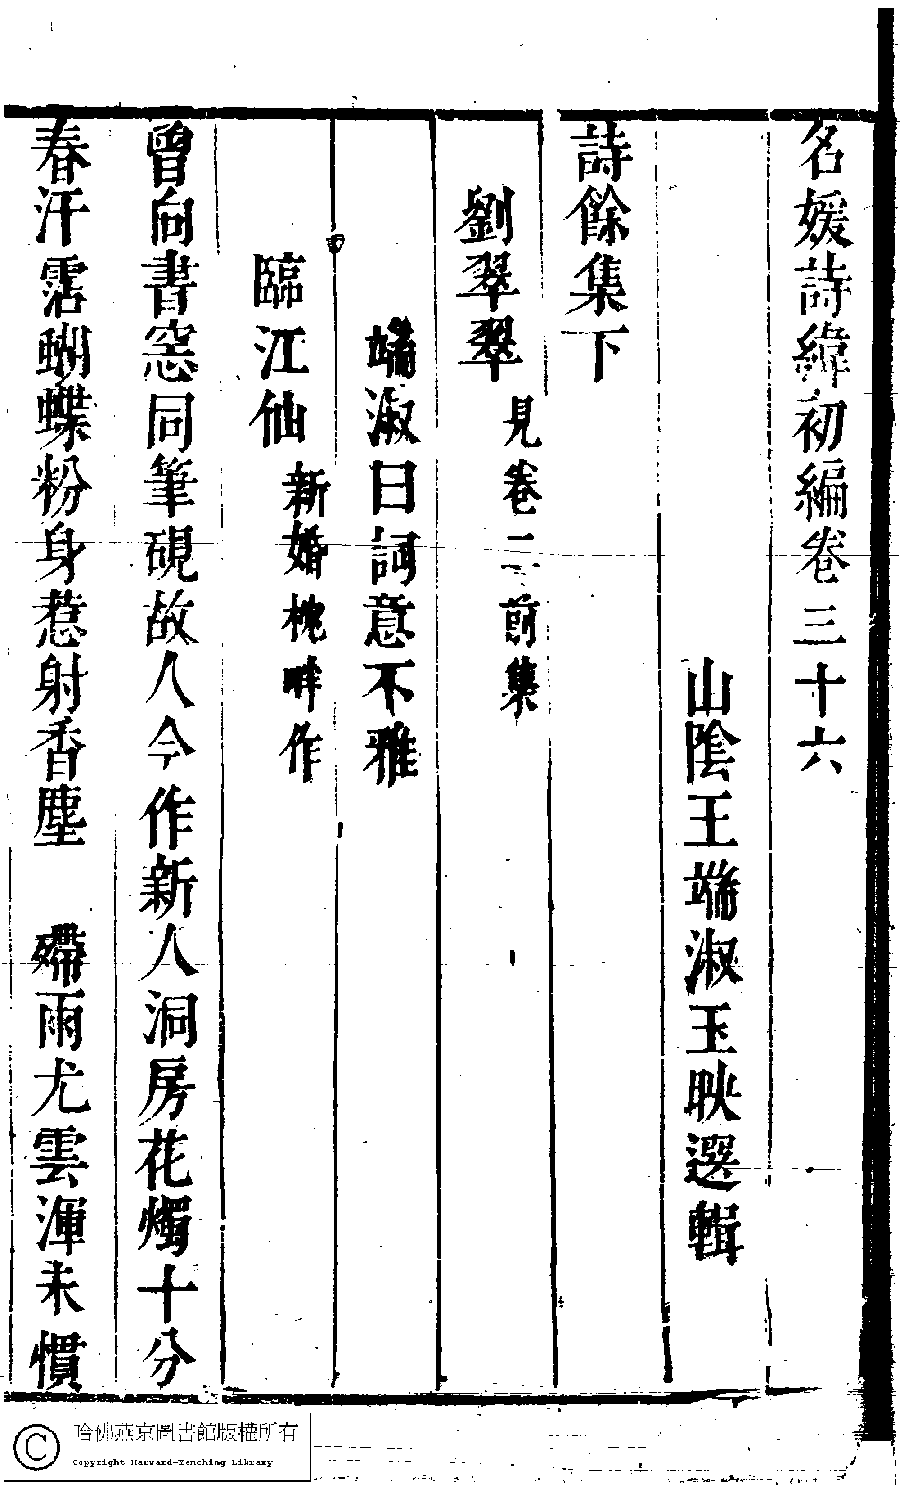 名媛詩緯初編卷三十六
山陰王端淑玉映選輯
詩餘集下
劉翠翠見卷二前集
端淑曰詞意不雅
臨江仙新婚枕畔作
曾向書窓同筆硯故人今作新人洞房花燭十分
春汗霑蝴蝶粉身惹射香塵 殢雨尤雲渾未慣
哈佛燕京圖書館版權所有
Copyright Harvard-Yenching Library